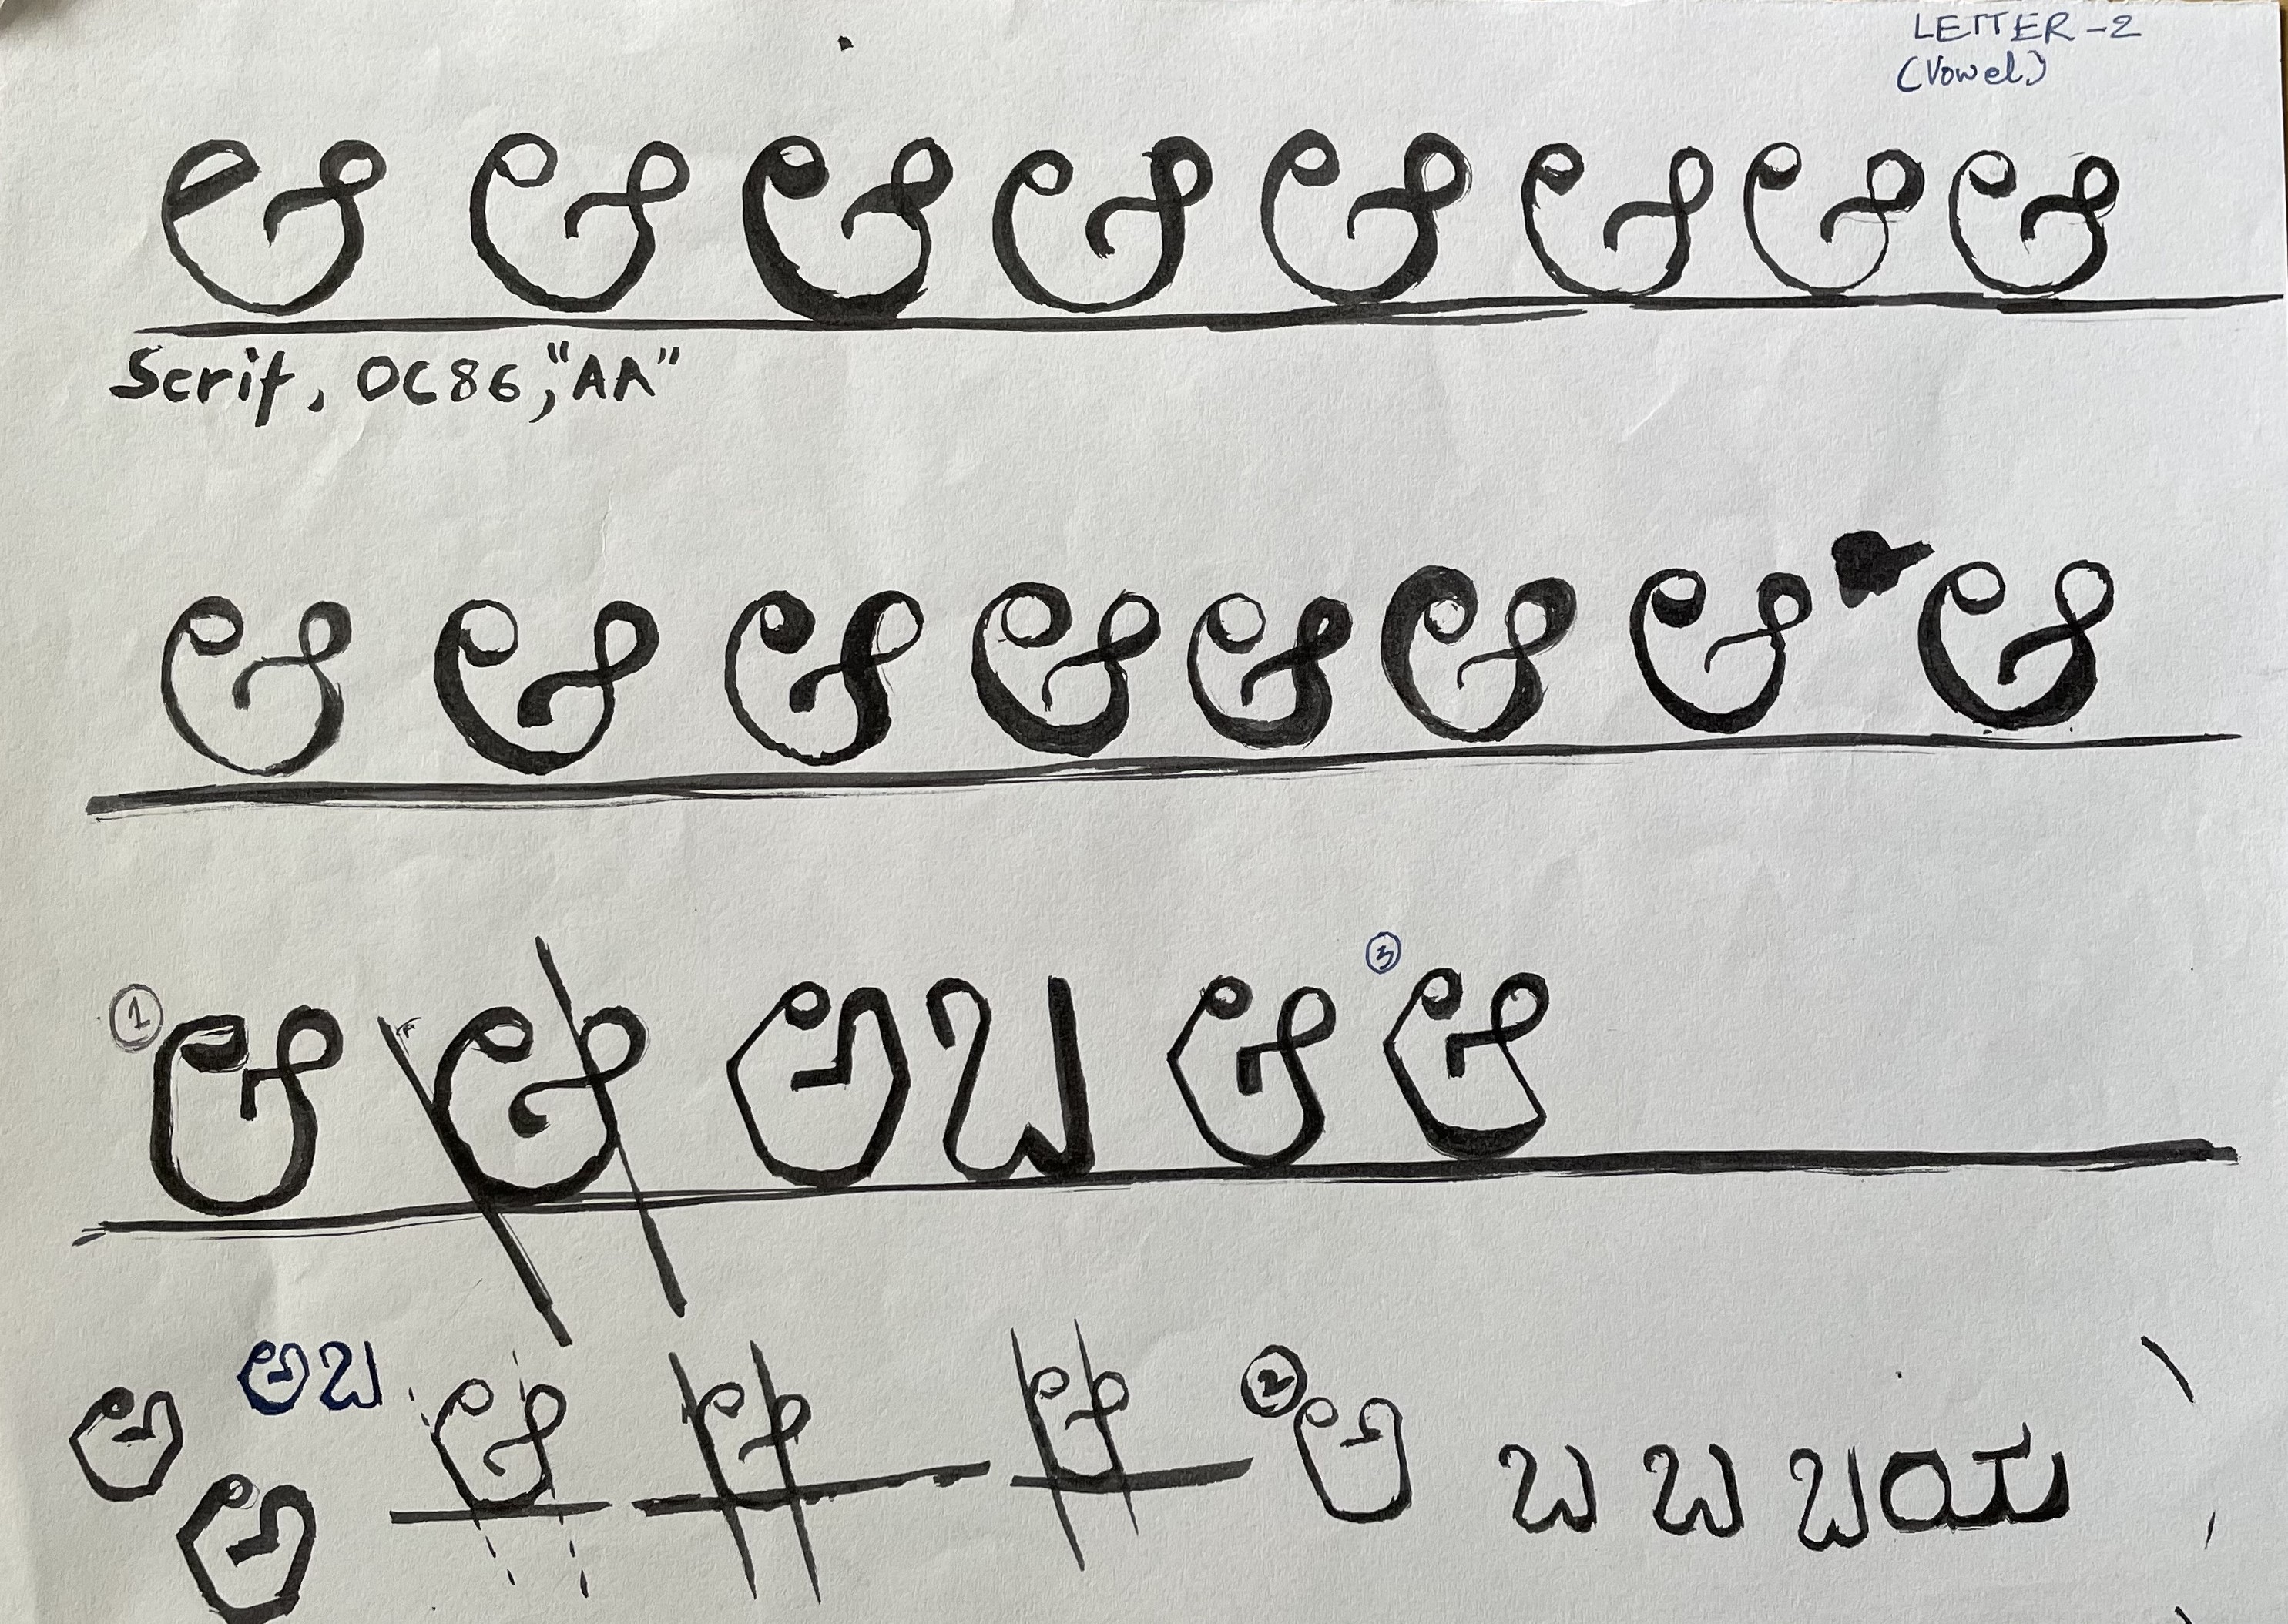 LETTER-2
(Vowel)
ಆ ಆ ಆ ಆ ಆ ಆ ಆ ಆ
Scrif, 0C86, "AA"
ಆ ಆ ಆ ಆ ಆ ಆ ಆ ಆ
1 ಆ ಆ ಅಬ ಆ 3 ಆ
ಅ ಅಬ ಆ ಆ ಆ 2 ಅ ಬ ಬ ಬಯ
ಅ